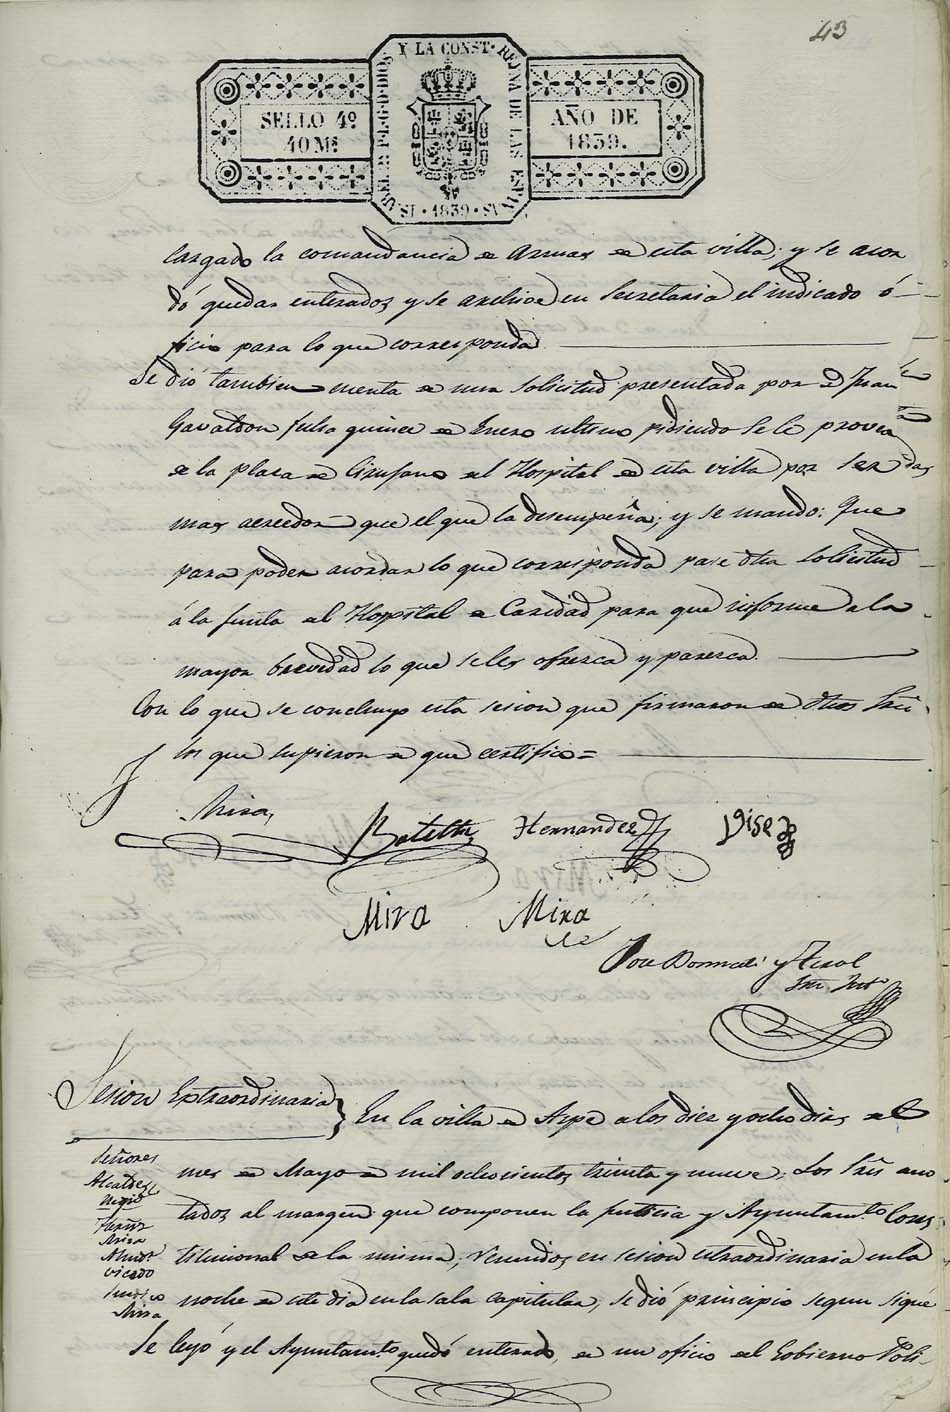 43
SELLO 4º
40 Mˢ
YSABEL 2ª P.L.G.D.DIOS Y LA CONST. REYNA DE LAS ESPAÑAS
1839
AÑO DE
1839.
cargado la comandancia de Armas de esta villa; y se acor
dó quedar enterados y se archive en Secretaria el indicado ó
ficio para lo que corresponda
Se dió tambien cuenta de una solicitud presentada por D Juan
Gavaldon fecha quince de Enero ultimo pidiendo se le provea
de la plaza de Cirujano del Hospital de esta villa por ser
mas acreedor que el que la desempeña; y se mando: Que
para poder acordar lo que corresponda pase dha solicitud
á la junta del Hospital de Caridad para que informe a la
mayor brevedad lo que se les ofresca y paresca.
Con lo que se concluyo esta sesion que firmaron de dhos Señ
los que supieron de que certifico =
Mira
Botella
Hernandez
Mira
Mira
Jose y Terol
Sesion Extraordinaria
En la villa de Aspe a los diez y ocho dias del
Señores
Alcaldes
Mira
Almodᵛ
Vicedo
Sindico
Mira
mes de Mayo de mil ochocientos treinta y nueve: Los Sres ano
tados al margen que componen la justicia y Ayuntamᵗᵒ Cons
titucional de la misma, reunidos en sesion extraordinaria en la
noche de este dia en la sala capitular, se dió principio segun sigue
Se leyó y el Ayuntamᵗᵒ quedó enterado, de un oficio del Gobierno Poli-